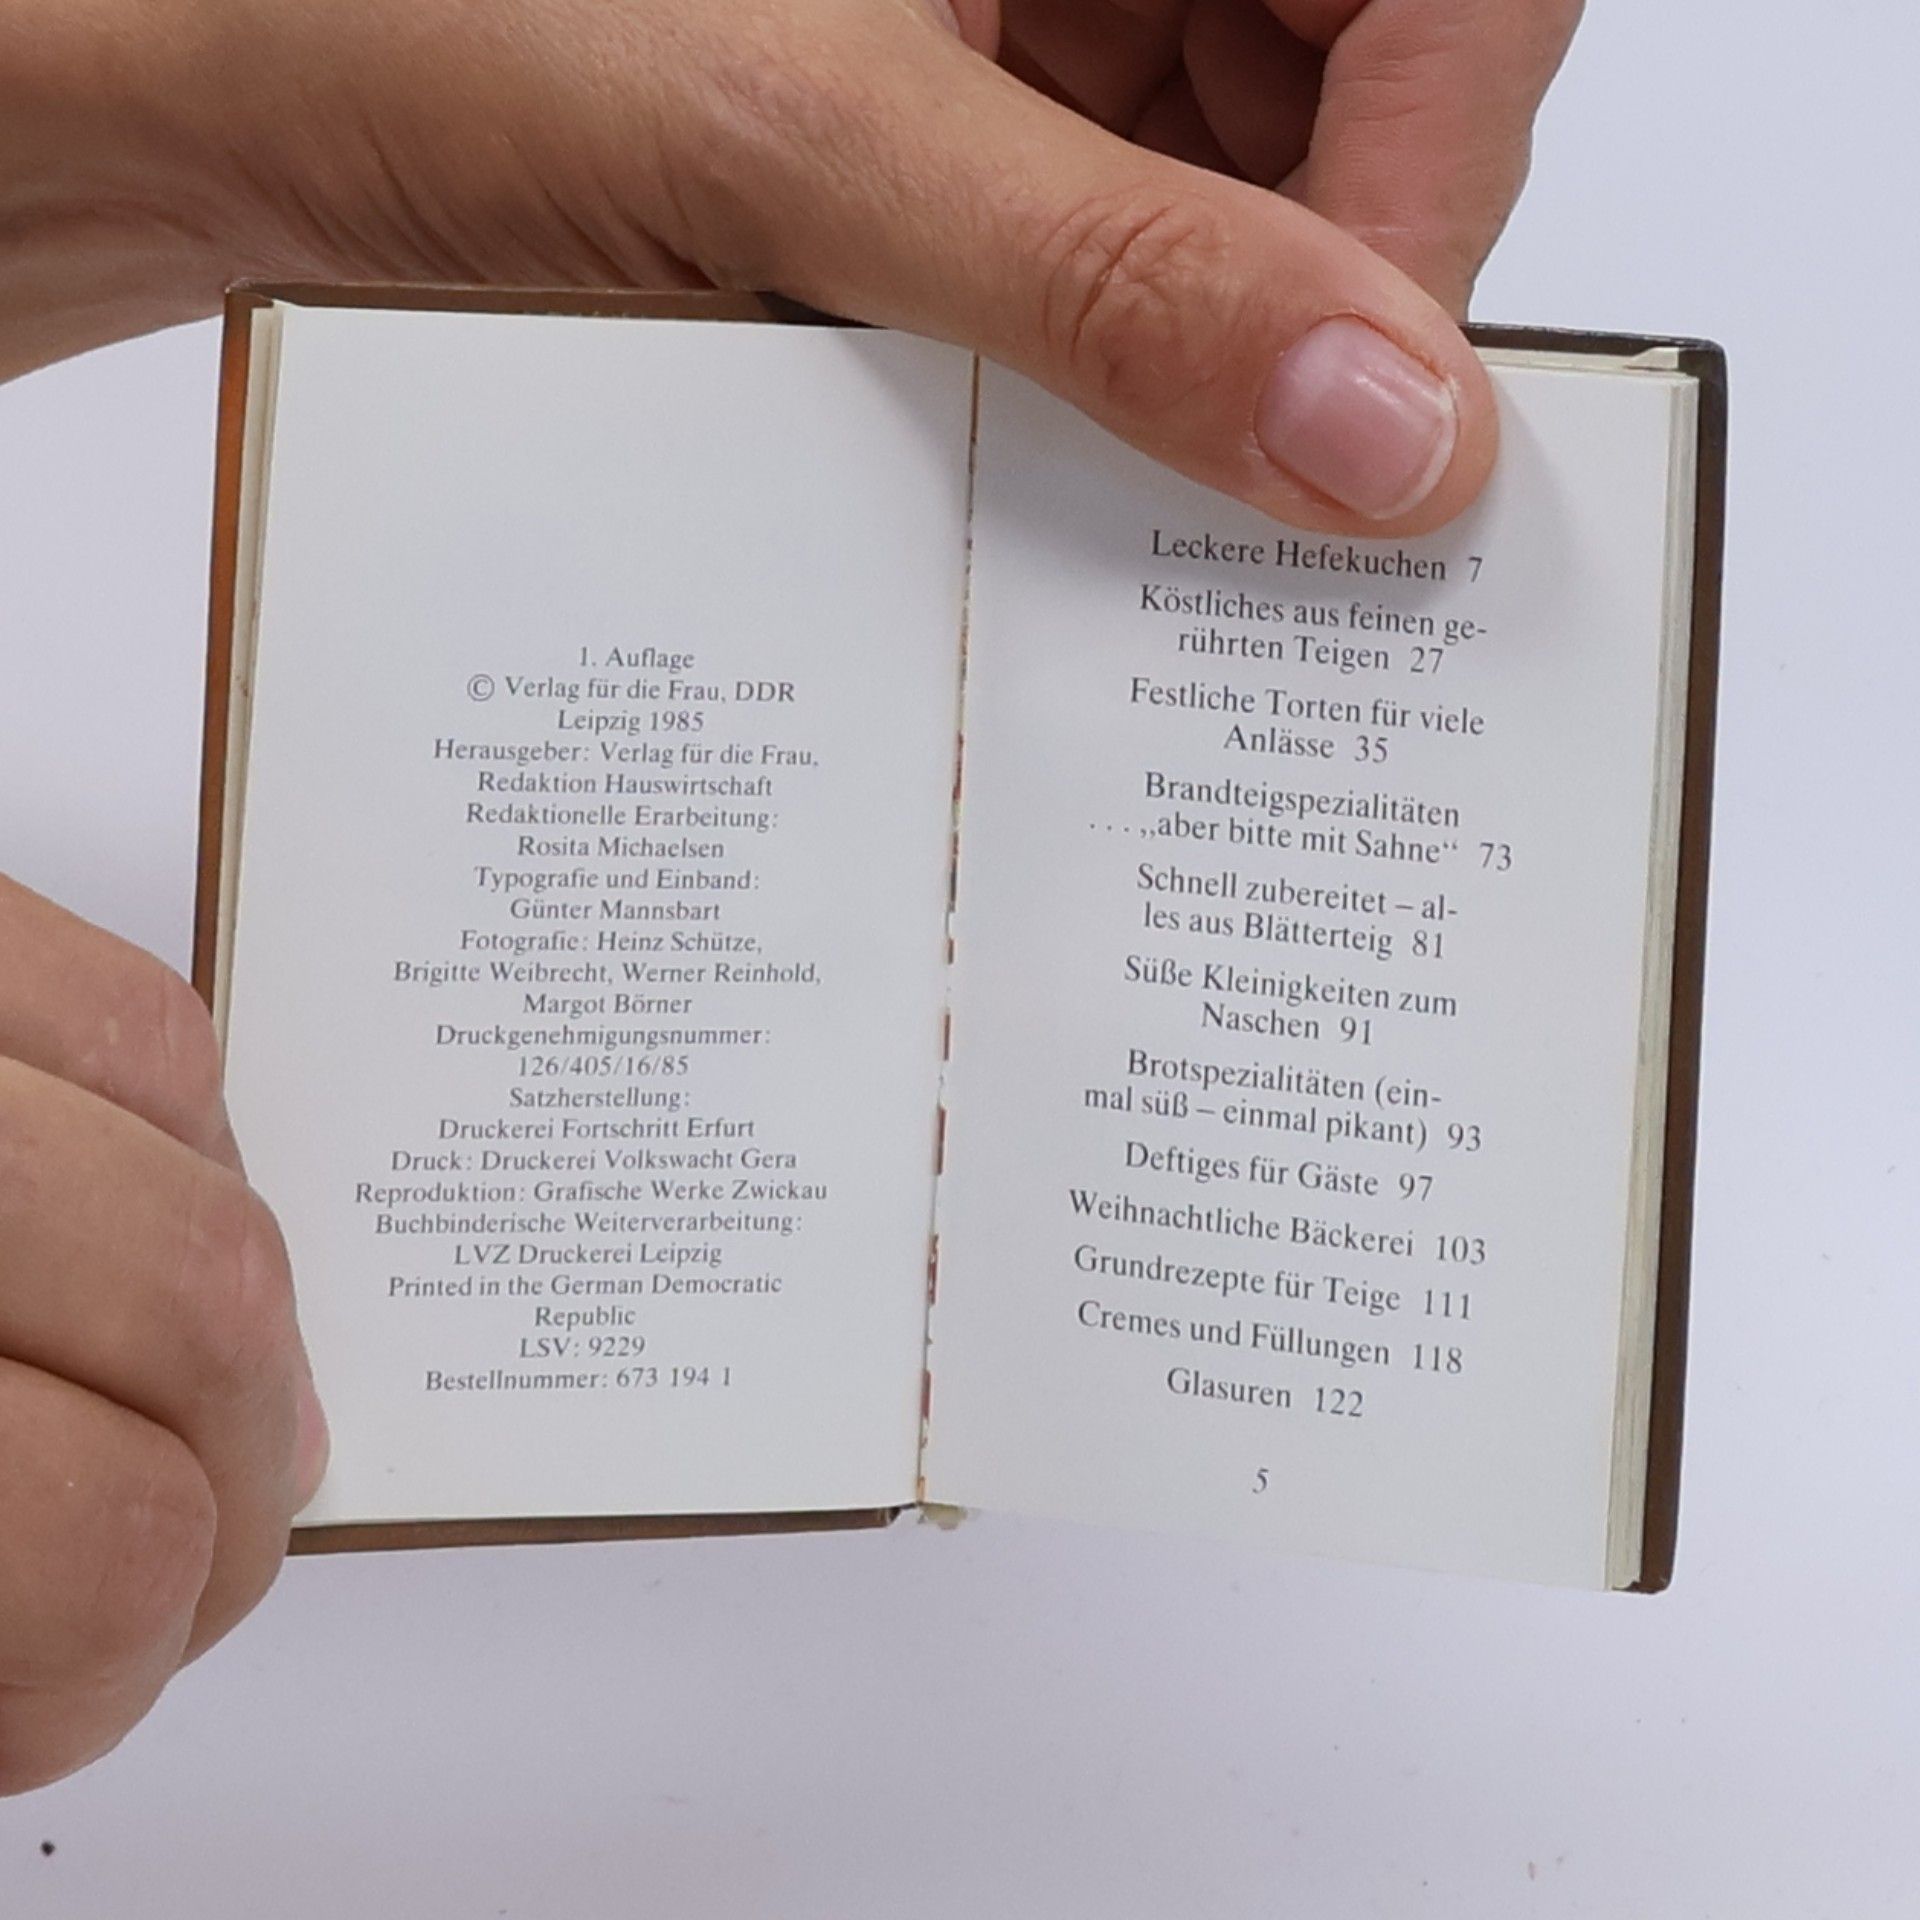 1. Auflage
© Verlag für die Frau, DDR
Leipzig 1985
Herausgeber: Verlag für die Frau,
Redaktion Hauswirtschaft
Redaktionelle Erarbeitung:
Rosita Michaelsen
Typografie und Einband:
Günter Mannsbart
Fotografie: Heinz Schütze,
Brigitte Weibrecht, Werner Reinhold,
Margot Börner
Druckgenehmigungsnummer:
126/405/16/85
Satzherstellung:
Druckerei Fortschritt Erfurt
Druck: Druckerei Volkswacht Gera
Reproduktion: Grafische Werke Zwickau
Buchbinderische Weiterverarbeitung:
LVZ Druckerei Leipzig
Printed in the German Democratic
Republic
LSV: 9229
Bestellnummer: 673 194 1
Leckere Hefekuchen 7
Köstliches aus feinen ge-
rührten Teigen 27
Festliche Torten für viele
Anlässe 35
Brandteigspezialitäten
. . . „aber bitte mit Sahne“ 73
Schnell zubereitet – al-
les aus Blätterteig 81
Süße Kleinigkeiten zum
Naschen 91
Brotspezialitäten (ein-
mal süß – einmal pikant) 93
Deftiges für Gäste 97
Weihnachtliche Bäckerei 103
Grundrezepte für Teige 111
Cremes und Füllungen 118
Glasuren 122
5